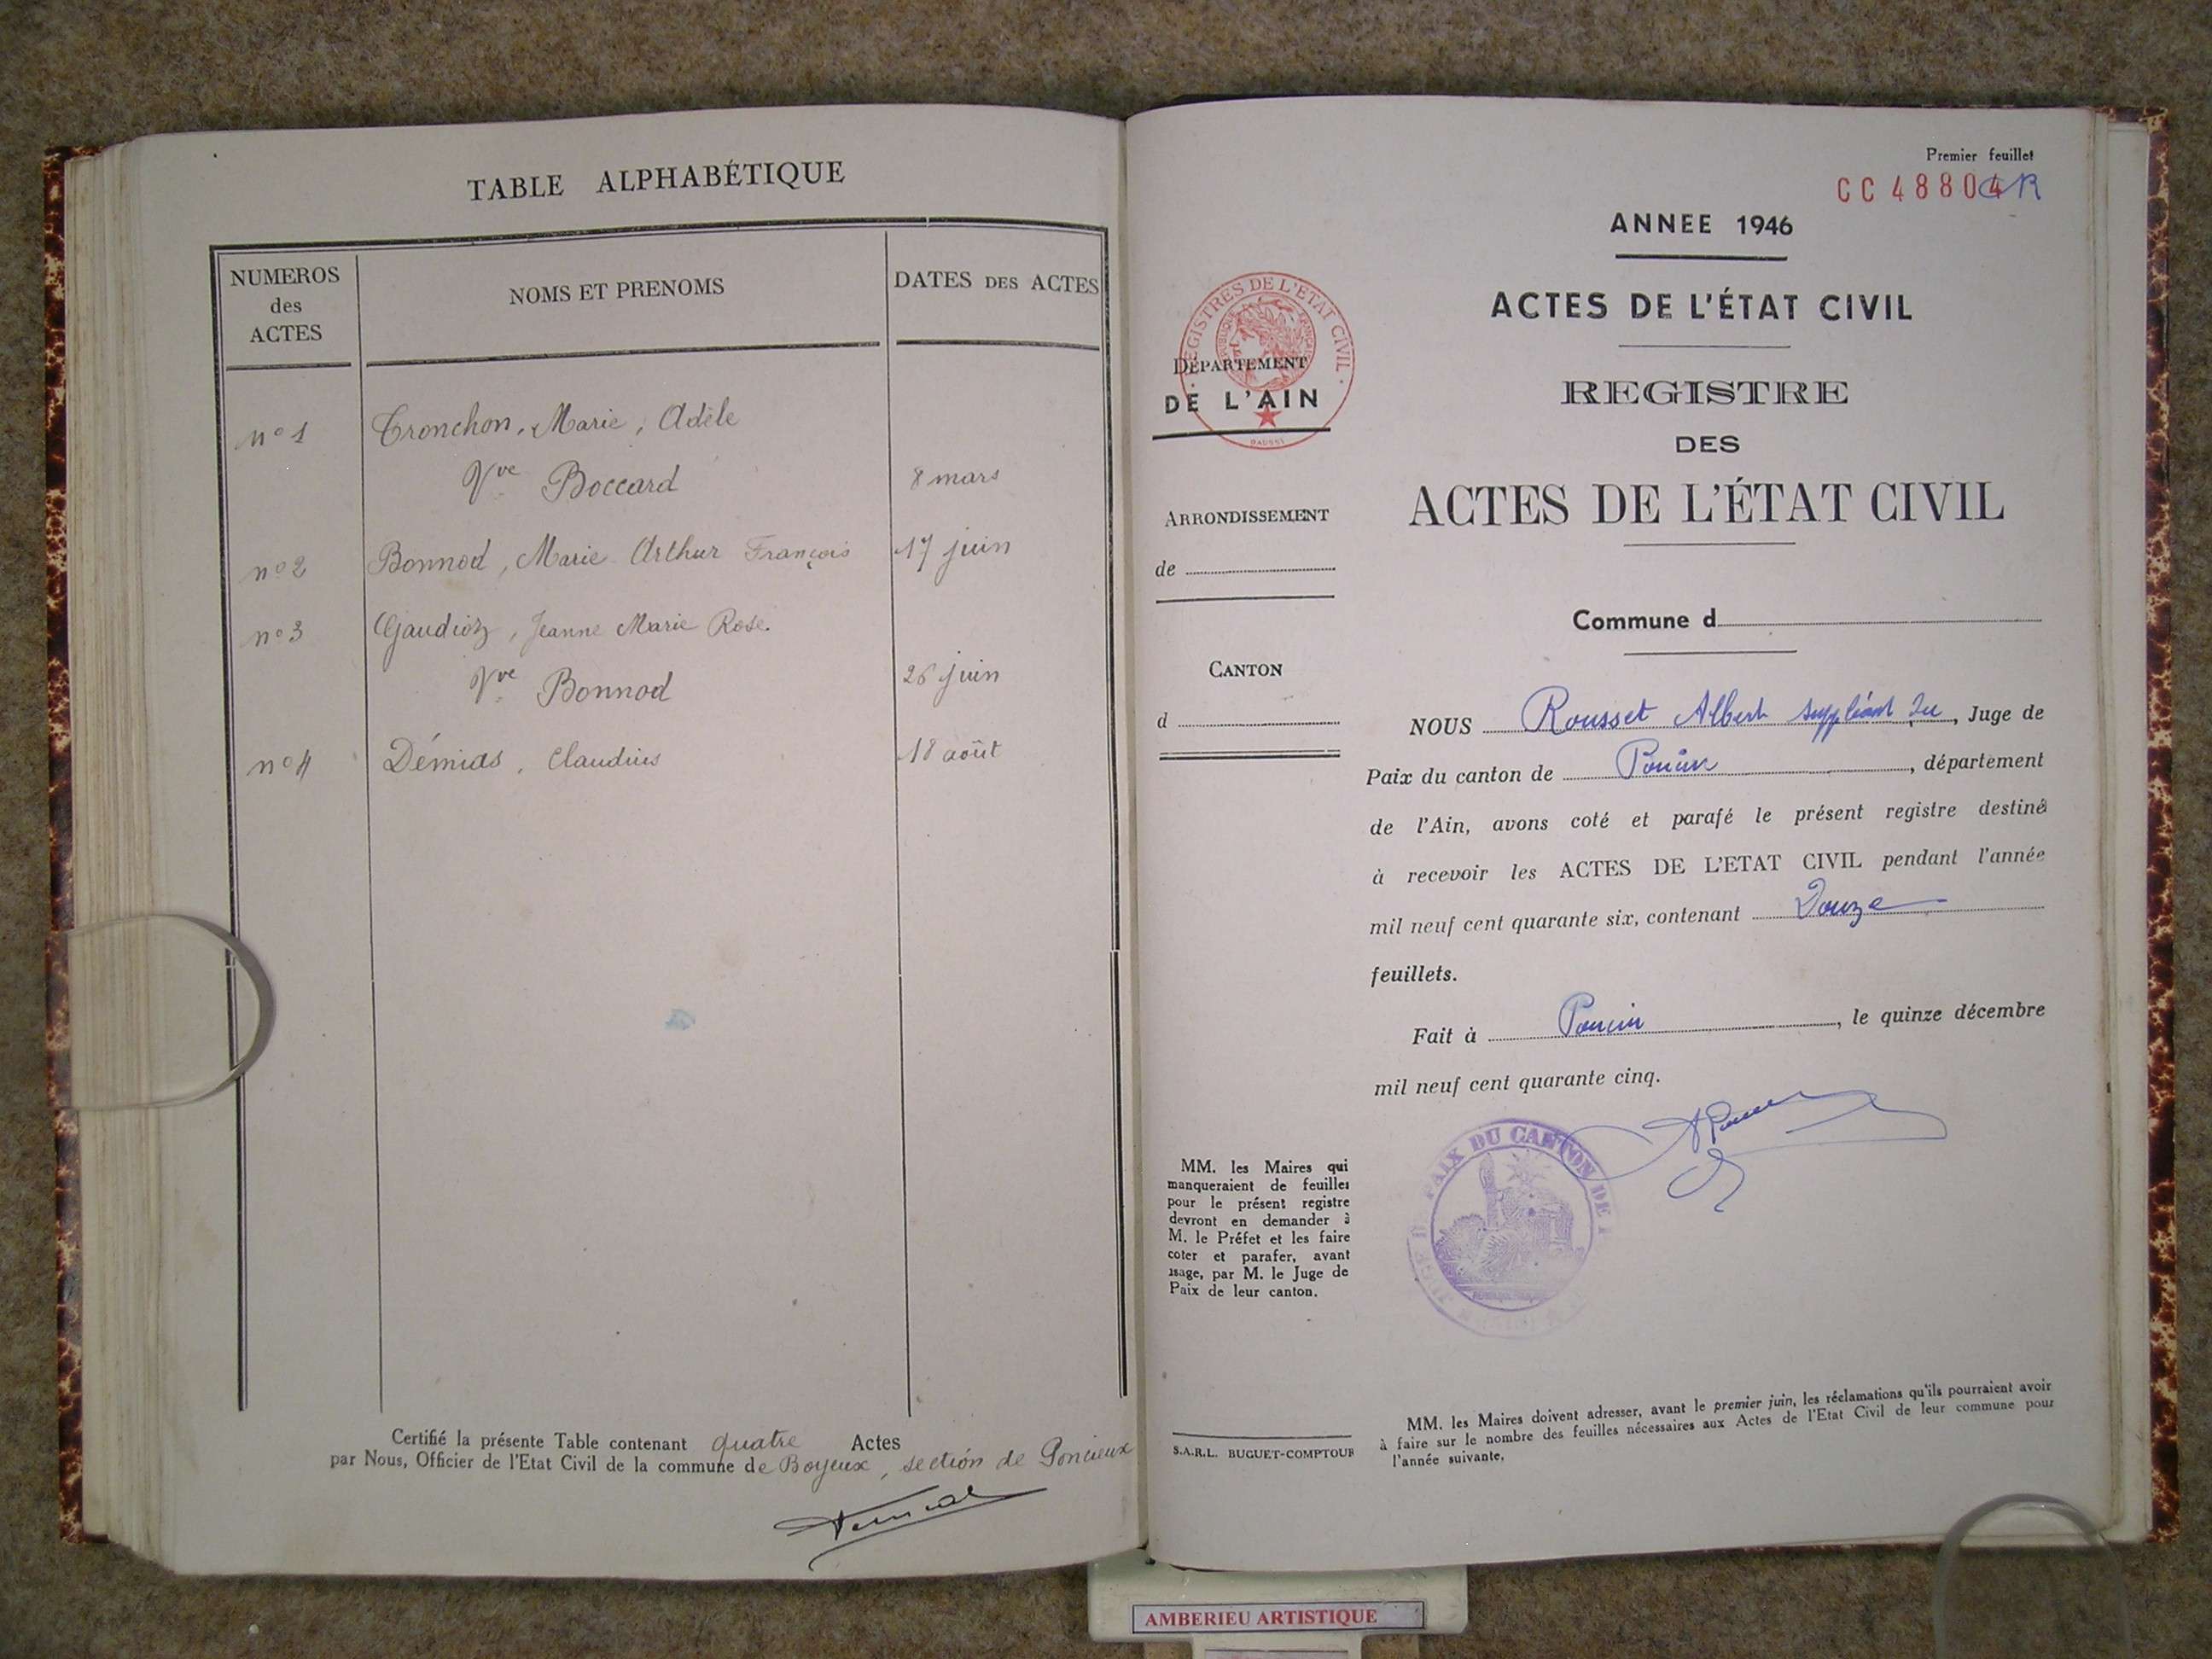 TABLE ALPHABÉTIQUE
NUMEROS
des
ACTES
NOMS ET PRENOMS
DATES DES ACTES
nº 1 Tronchon, Marie, Adèle
Vve Boccard 8 mars
nº 2 Bonnod, Marie Arthur François 17 juin
nº 3 Gaudioz, Jeanne Marie Rose
Vve Bonnod 26 juin
nº 4 Démias, Claudius 18 août
Certifié la présente Table contenant quatre Actes
par Nous, Officier de l'Etat Civil de la commune de Boyeux, section de Poncieux
Premier feuillet
CC 48804
ANNEE 1946
ACTES DE L'ÉTAT CIVIL
REGISTRE
DES
ACTES DE L'ÉTAT CIVIL
REGISTRES DE L'ÉTAT CIVIL
DÉPARTEMENT
DE L'AIN
ARRONDISSEMENT
de
CANTON
d
Commune d
NOUS Rousset Albert suppléant du, Juge de
Paix du canton de Poncin, département
de l'Ain, avons coté et parafé le présent registre destiné
à recevoir les ACTES DE L'ETAT CIVIL pendant l'année
mil neuf cent quarante six, contenant Douze
feuillets.
Fait à Poncin, le quinze décembre
mil neuf cent quarante cinq.
PAIX DU CANTON DE
MM. les Maires qui
manqueraient de feuilles
pour le présent registre
devront en demander à
M. le Préfet et les faire
coter et parafer, avant
usage, par M. le Juge de
Paix de leur canton.
S.A.R.L. BUGUET-COMPTOUR
MM. les Maires doivent adresser, avant le premier juin, les réclamations qu'ils pourraient avoir
à faire sur le nombre des feuilles nécessaires aux Actes de l'Etat Civil de leur commune pour
l'année suivante.
AMBERIEU ARTISTIQUE